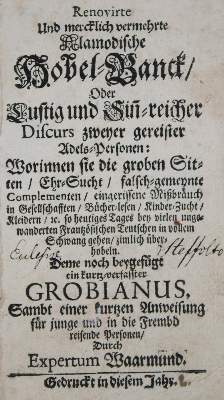 Renovirte
Und mercklich vermehrte
Alamodische
Hobel-Banck/
Oder
Lustig und Siñ-reicher
Discurs zweyer gereister
Adels-Personen:
Worinnen sie die groben Sit-
ten / Ehr-Sucht / falsch-gemeynte
Complementen / eingerissene Mißbräuch
in Gesellschafften / Bücher-lesen / Kinder-Zucht /
Kleidern / ec. so heutiges Tages bey vielen unge-
wanderten Frantzösischen Teutschen in vollem
Schwang gehen / zimlich über-
hobeln.
Deme noch beygefügt
ein kurtz-verfasster
GROBIANUS,
Sambt einer kurtzen Anweisung
für junge und in die Frembd
reisende Personen /
Durch
Expertum Waarmund.
Gedruckt in diesem Jahr.